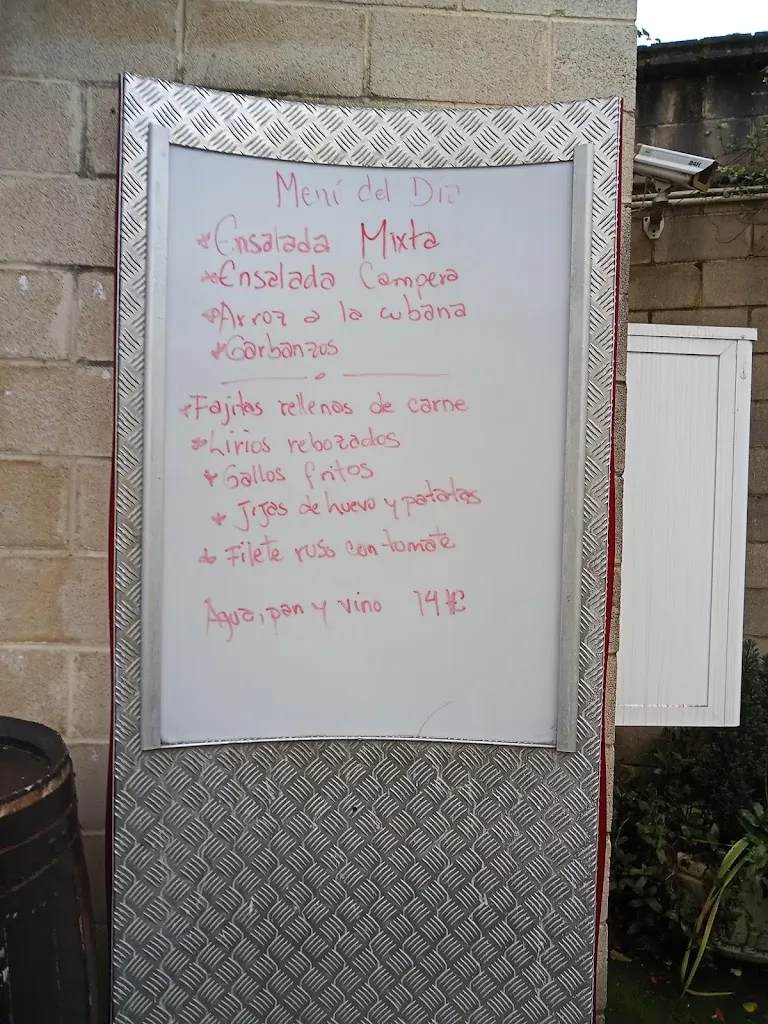 Menú del Día
*Ensalada Mixta
*Ensalada Campera
*Arroz a la cubana
*Garbanzos
*Fajitas rellenas de carne
*Lirios rebozados
*Gallos fritos
*Jijas de huevo y patatas
*Filete ruso con tomate
Agua, pan y vino 14 €
24H